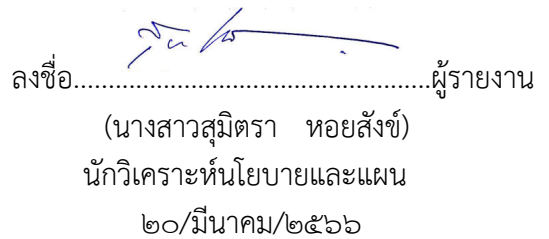 ลงชื่อ......................................................ผู้รายงาน
(นางสาวสุมิตรา หอยสังข์)
นักวิเคราะห์นโยบายและแผน
๒๐/มีนาคม/๒๕๖๖